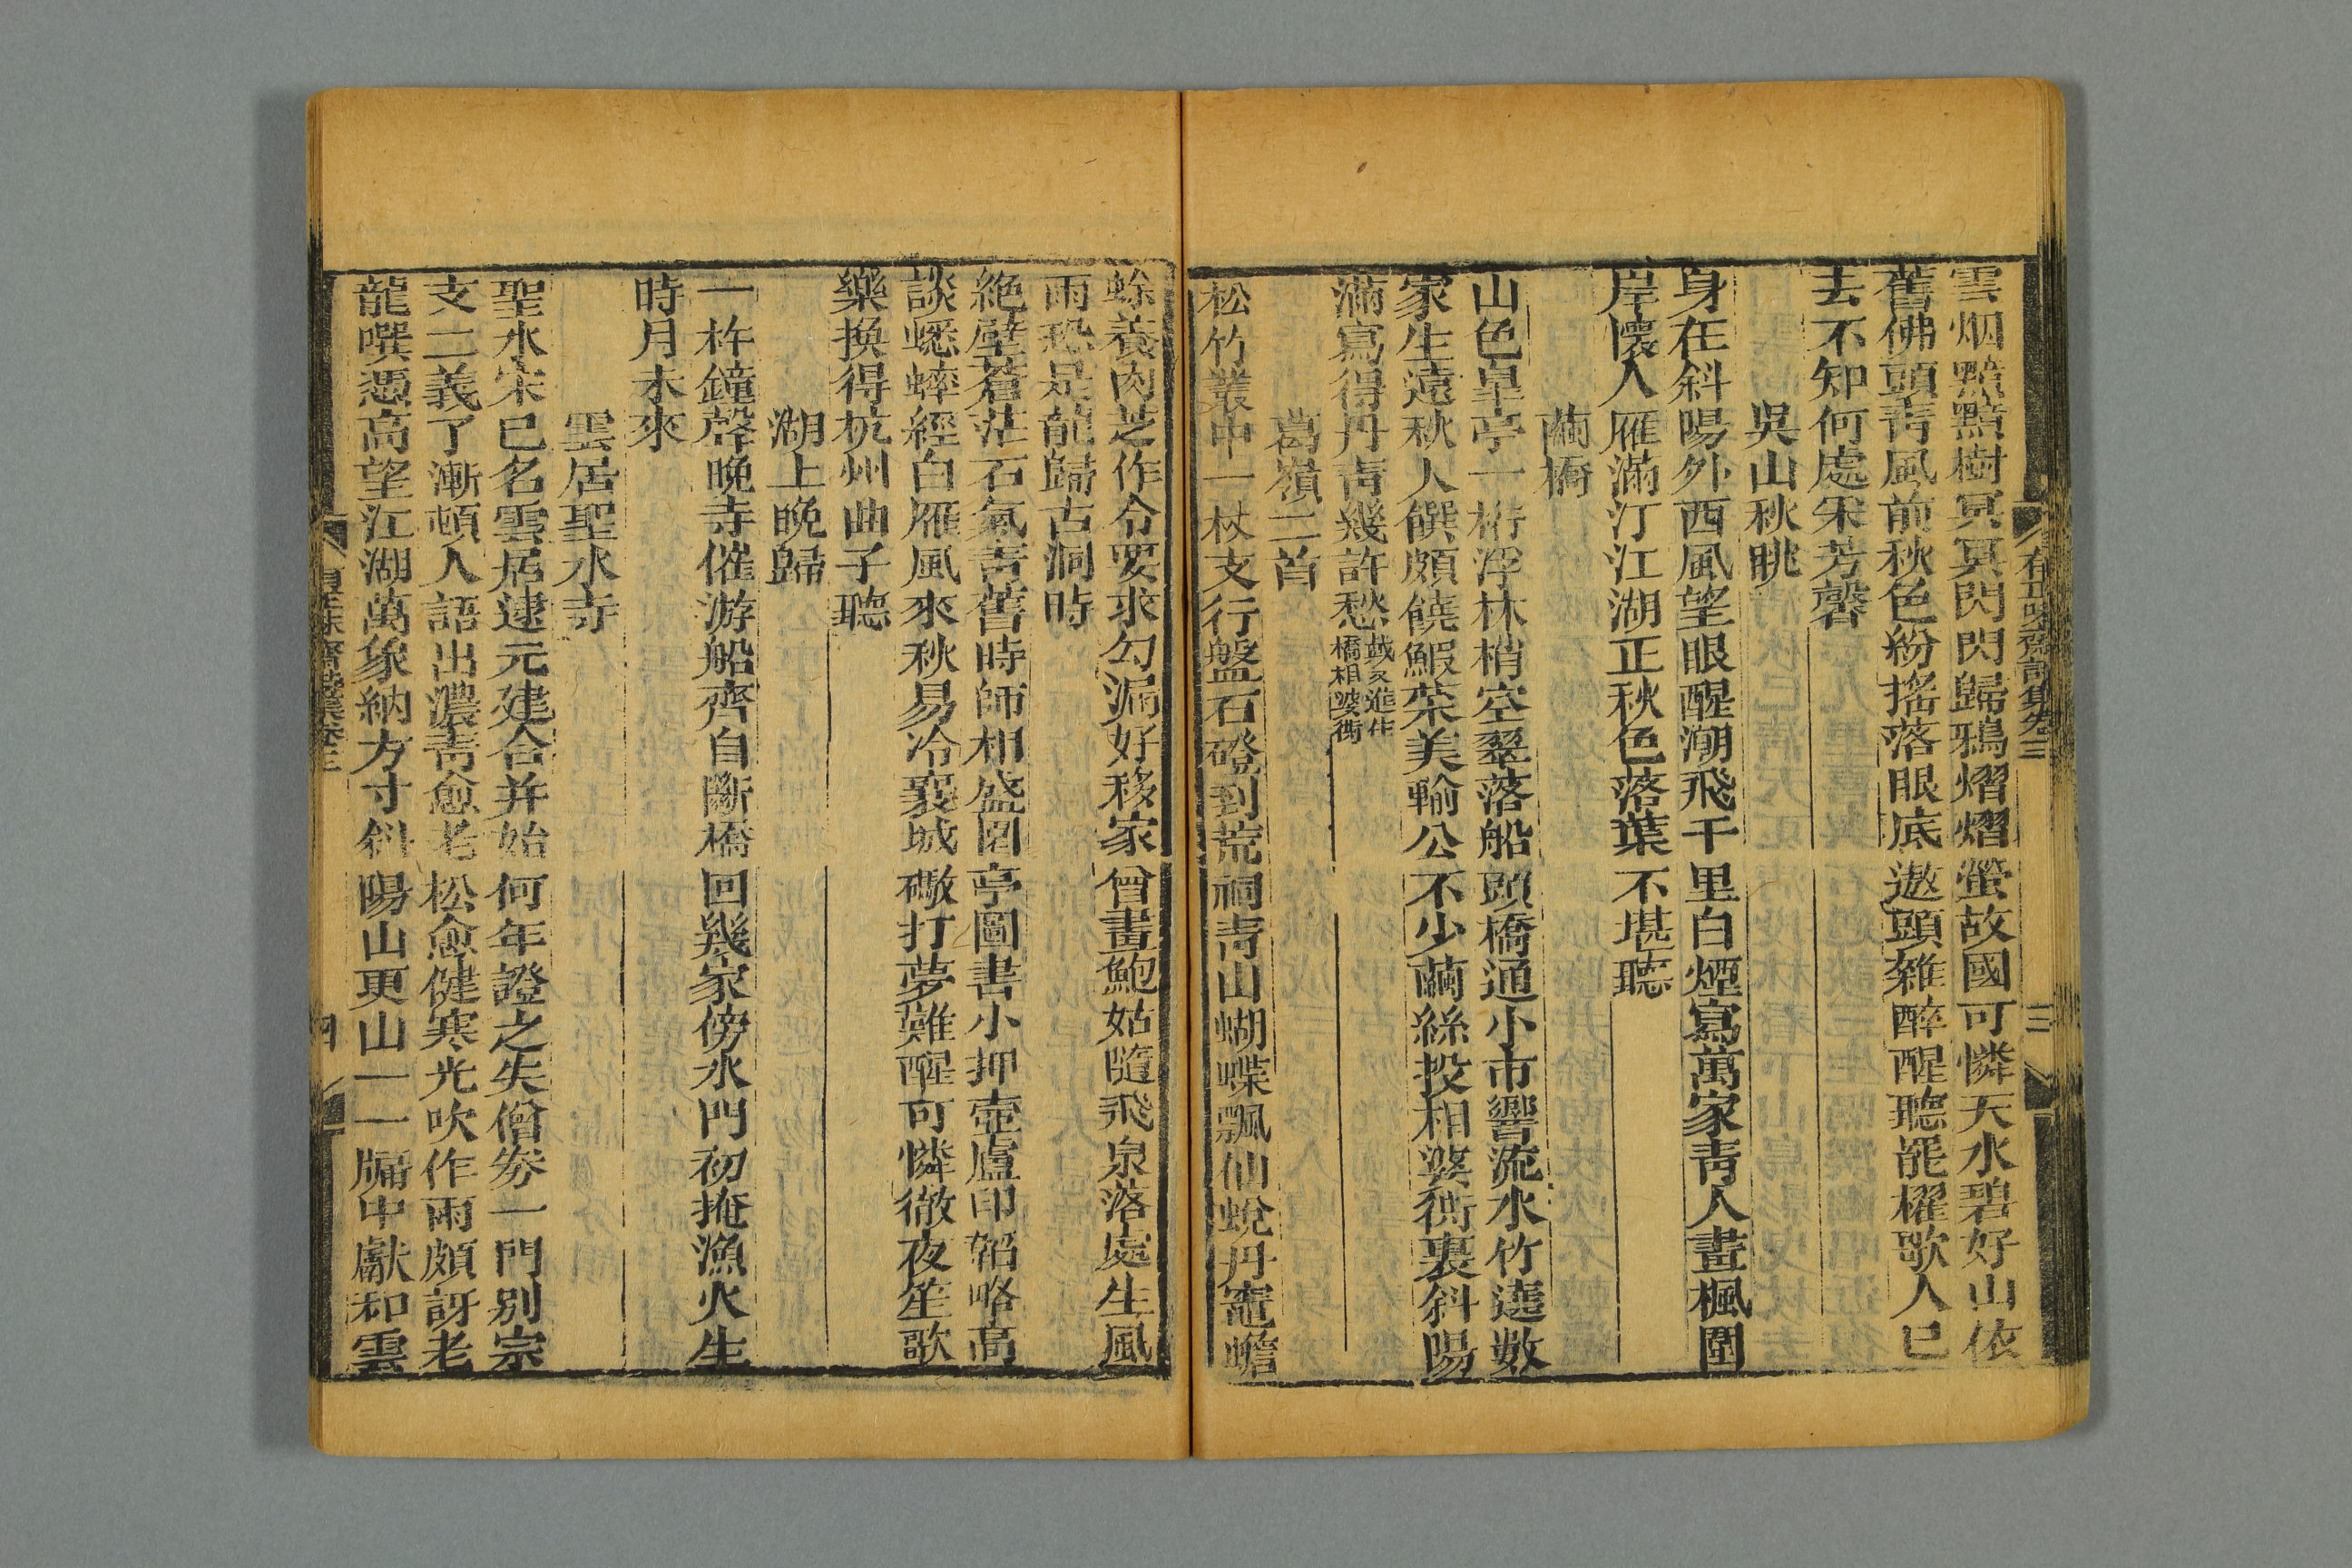 有正味齋詩集卷三
三
雲烟黯黯樹冥冥閃閃歸鴉熠熠螢故國可憐天水碧好山依
舊佛頭青風前秋色紛搖落眼底遨頭雜醉醒聽罷櫂歌人已
去不知何處宋芳馨
吳山秋眺
身在斜陽外西風望眼醒潮飛千里白煙寫萬家青人畫楓圍
岸懷人雁滿汀江湖正秋色落葉不堪聽
繭橋
山色皐亭一桁浮林梢空翠落船頭橋通小市響流水竹遶數
家生遠秋人饌頗饒鰕菜美輸公不少繭絲投相婆衖裏斜陽
滿寫得丹青幾許愁
戴文進住
橋相婆衖
葛嶺二首
松竹叢中一杖支行盤石磴到荒祠青山蝴蝶飄仙蛻丹竈蟾
蜍養肉芝作令要求勾漏好移家曾畫鮑姑隨飛泉落處生風
雨恐是龍歸古洞時
絶壁蒼茫石氣青舊時師相盛園亭圖書小押壺盧印韜略高
談蟋蟀經白雁風來秋易冷襄城礮打夢難醒可憐徹夜笙歌
樂換得杭州曲子聽
湖上晚歸
一杵鐘聲晚寺催游船齊自斷橋回幾家傍水門初掩漁火生
時月未來
雲居聖水寺
聖水宋已名雲居逮元建合并始何年證之失僧劵一門别宗
支二義了漸頓人語出濃青愈老松愈健寒光吹作雨頗訝老
龍噀憑高望江湖萬象納方寸斜陽山更山一一牖中獻和雲
四